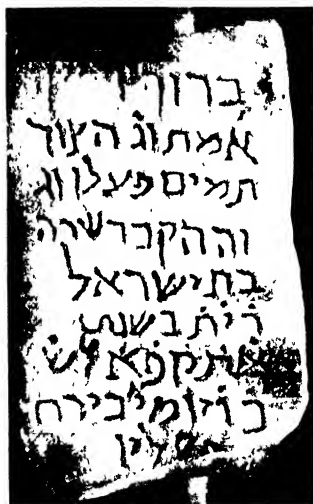 ברוך
אמת וג הצור
תמים פעלו וג
וה הקבר שרה
בת ישראל
רית בשנת
אתקפא לש
יומי בירח